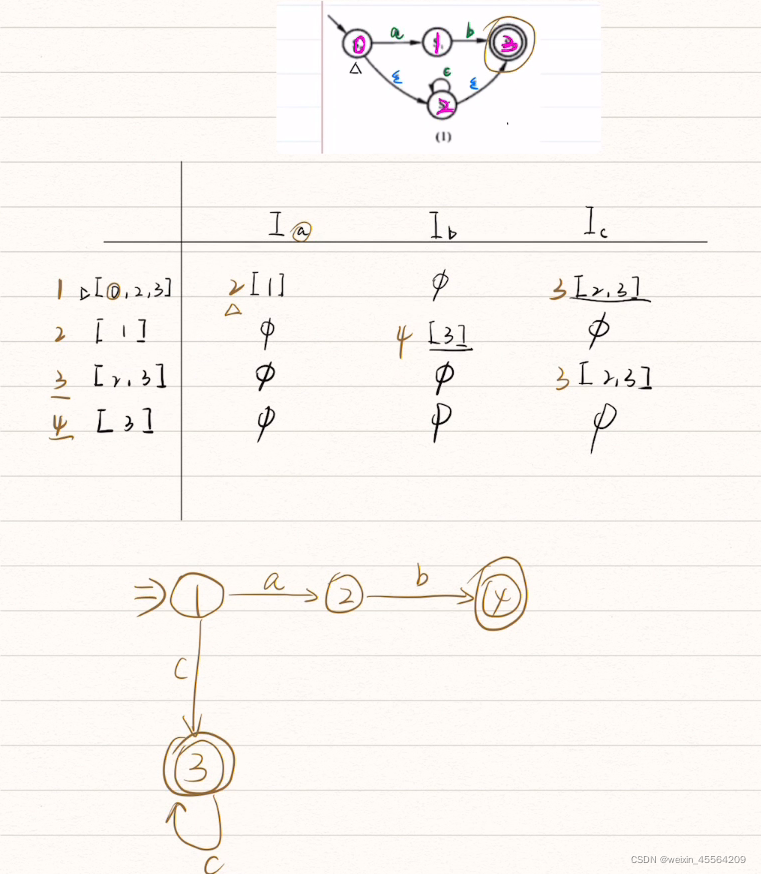 a b
0 1 3
ε c ε
2
(1)
I a I b I c
1 [0,2,3] 2 [1] φ 3 [2,3]
2 [1] φ 4 [3] φ
3 [2,3] φ φ 3 [2,3]
4 [3] φ φ φ
⇒ 1 a 2 b 4
c
3
c
CSDN @weixin_45564209